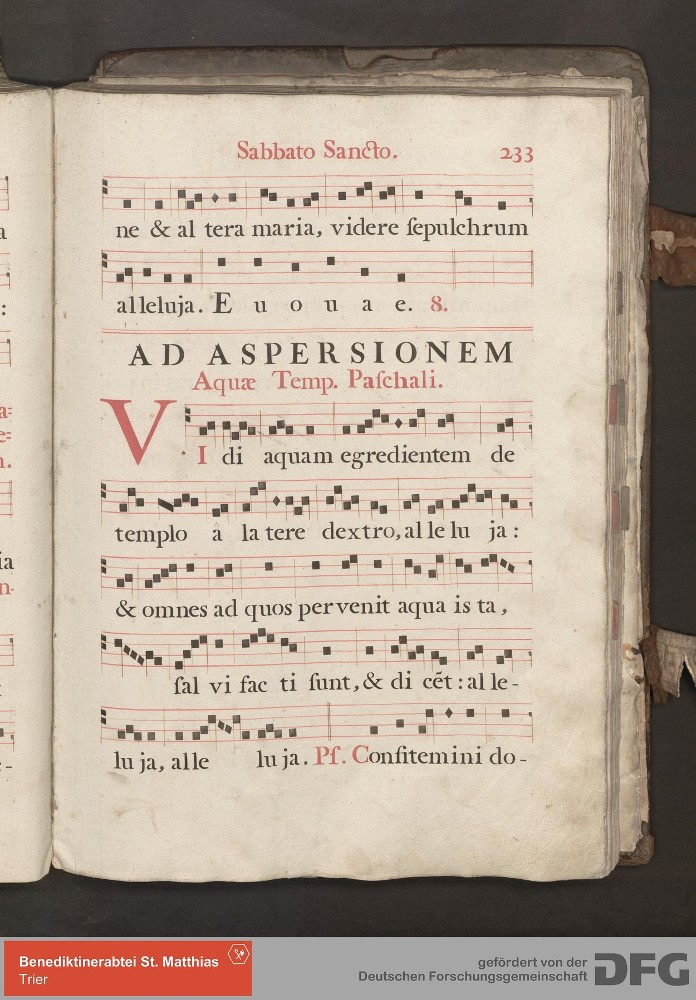 Sabbato Sancto. 233
ne & al tera maria, videre ſepulchrum
alleluja. E u o u a e. 8.
AD ASPERSIONEM
Aquæ Temp. Paſchali.
VI di aquam egredientem de
templo a la tere dextro, al le lu ja:
& omnes ad quos per venit aqua is ta,
ſal vi fac ti ſunt, & di cẽt: al le-
lu ja, alle lu ja. Pſ. Confitemini do-
Benediktinerabtei St. Matthias
Trier
gefördert von der
Deutschen Forschungsgemeinschaft
DFG